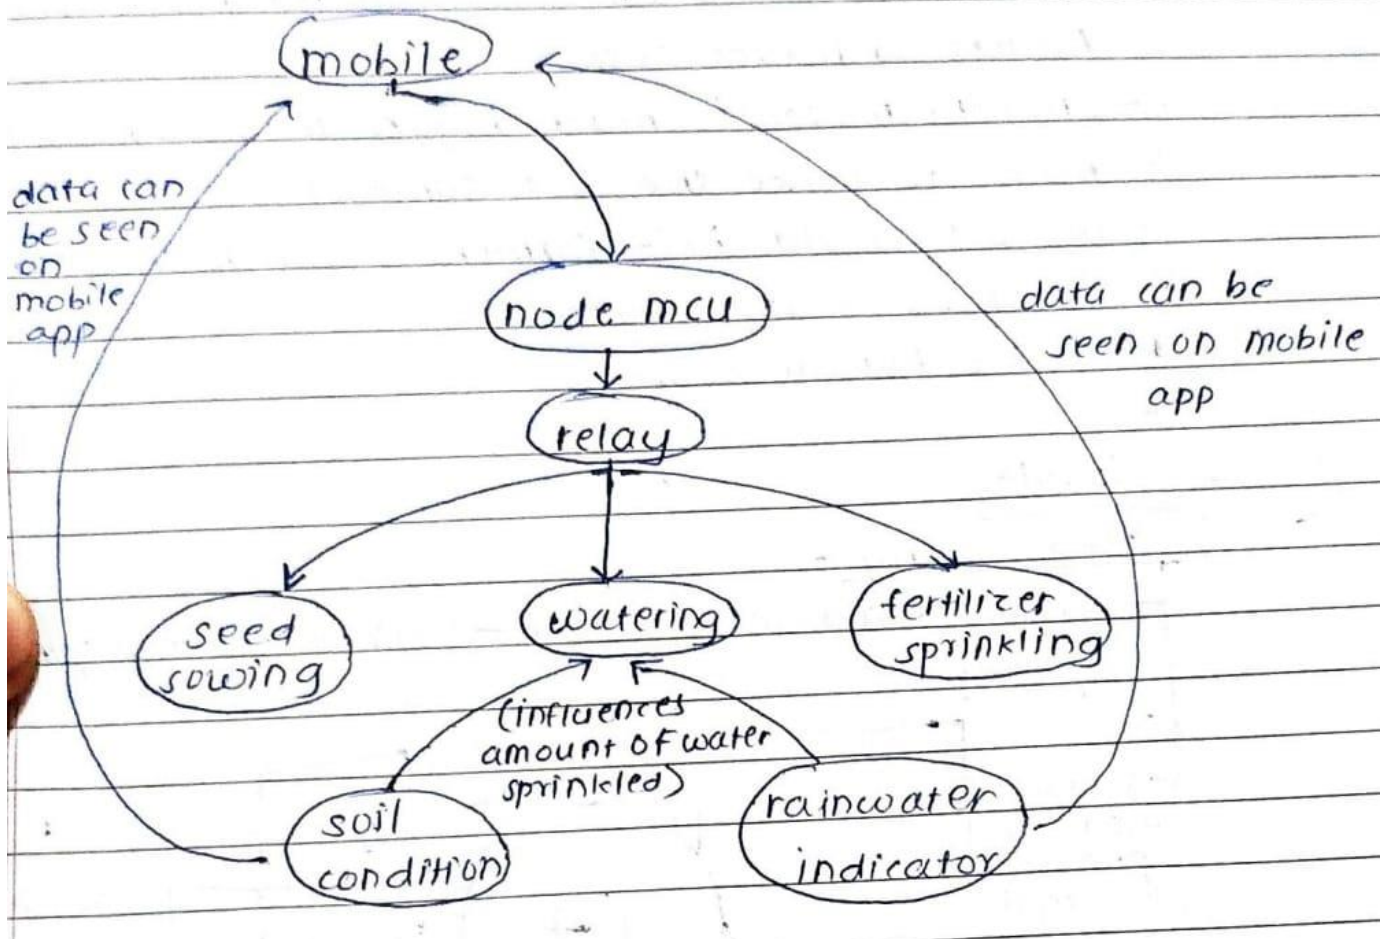 mobile
data can
be seen
on
mobile
app
node mcu
data can be
seen on mobile
app
relay
seed
sowing
watering
fertilizer
sprinkling
(influences
amount of water
sprinkled)
soil
condition
rainwater
indicator